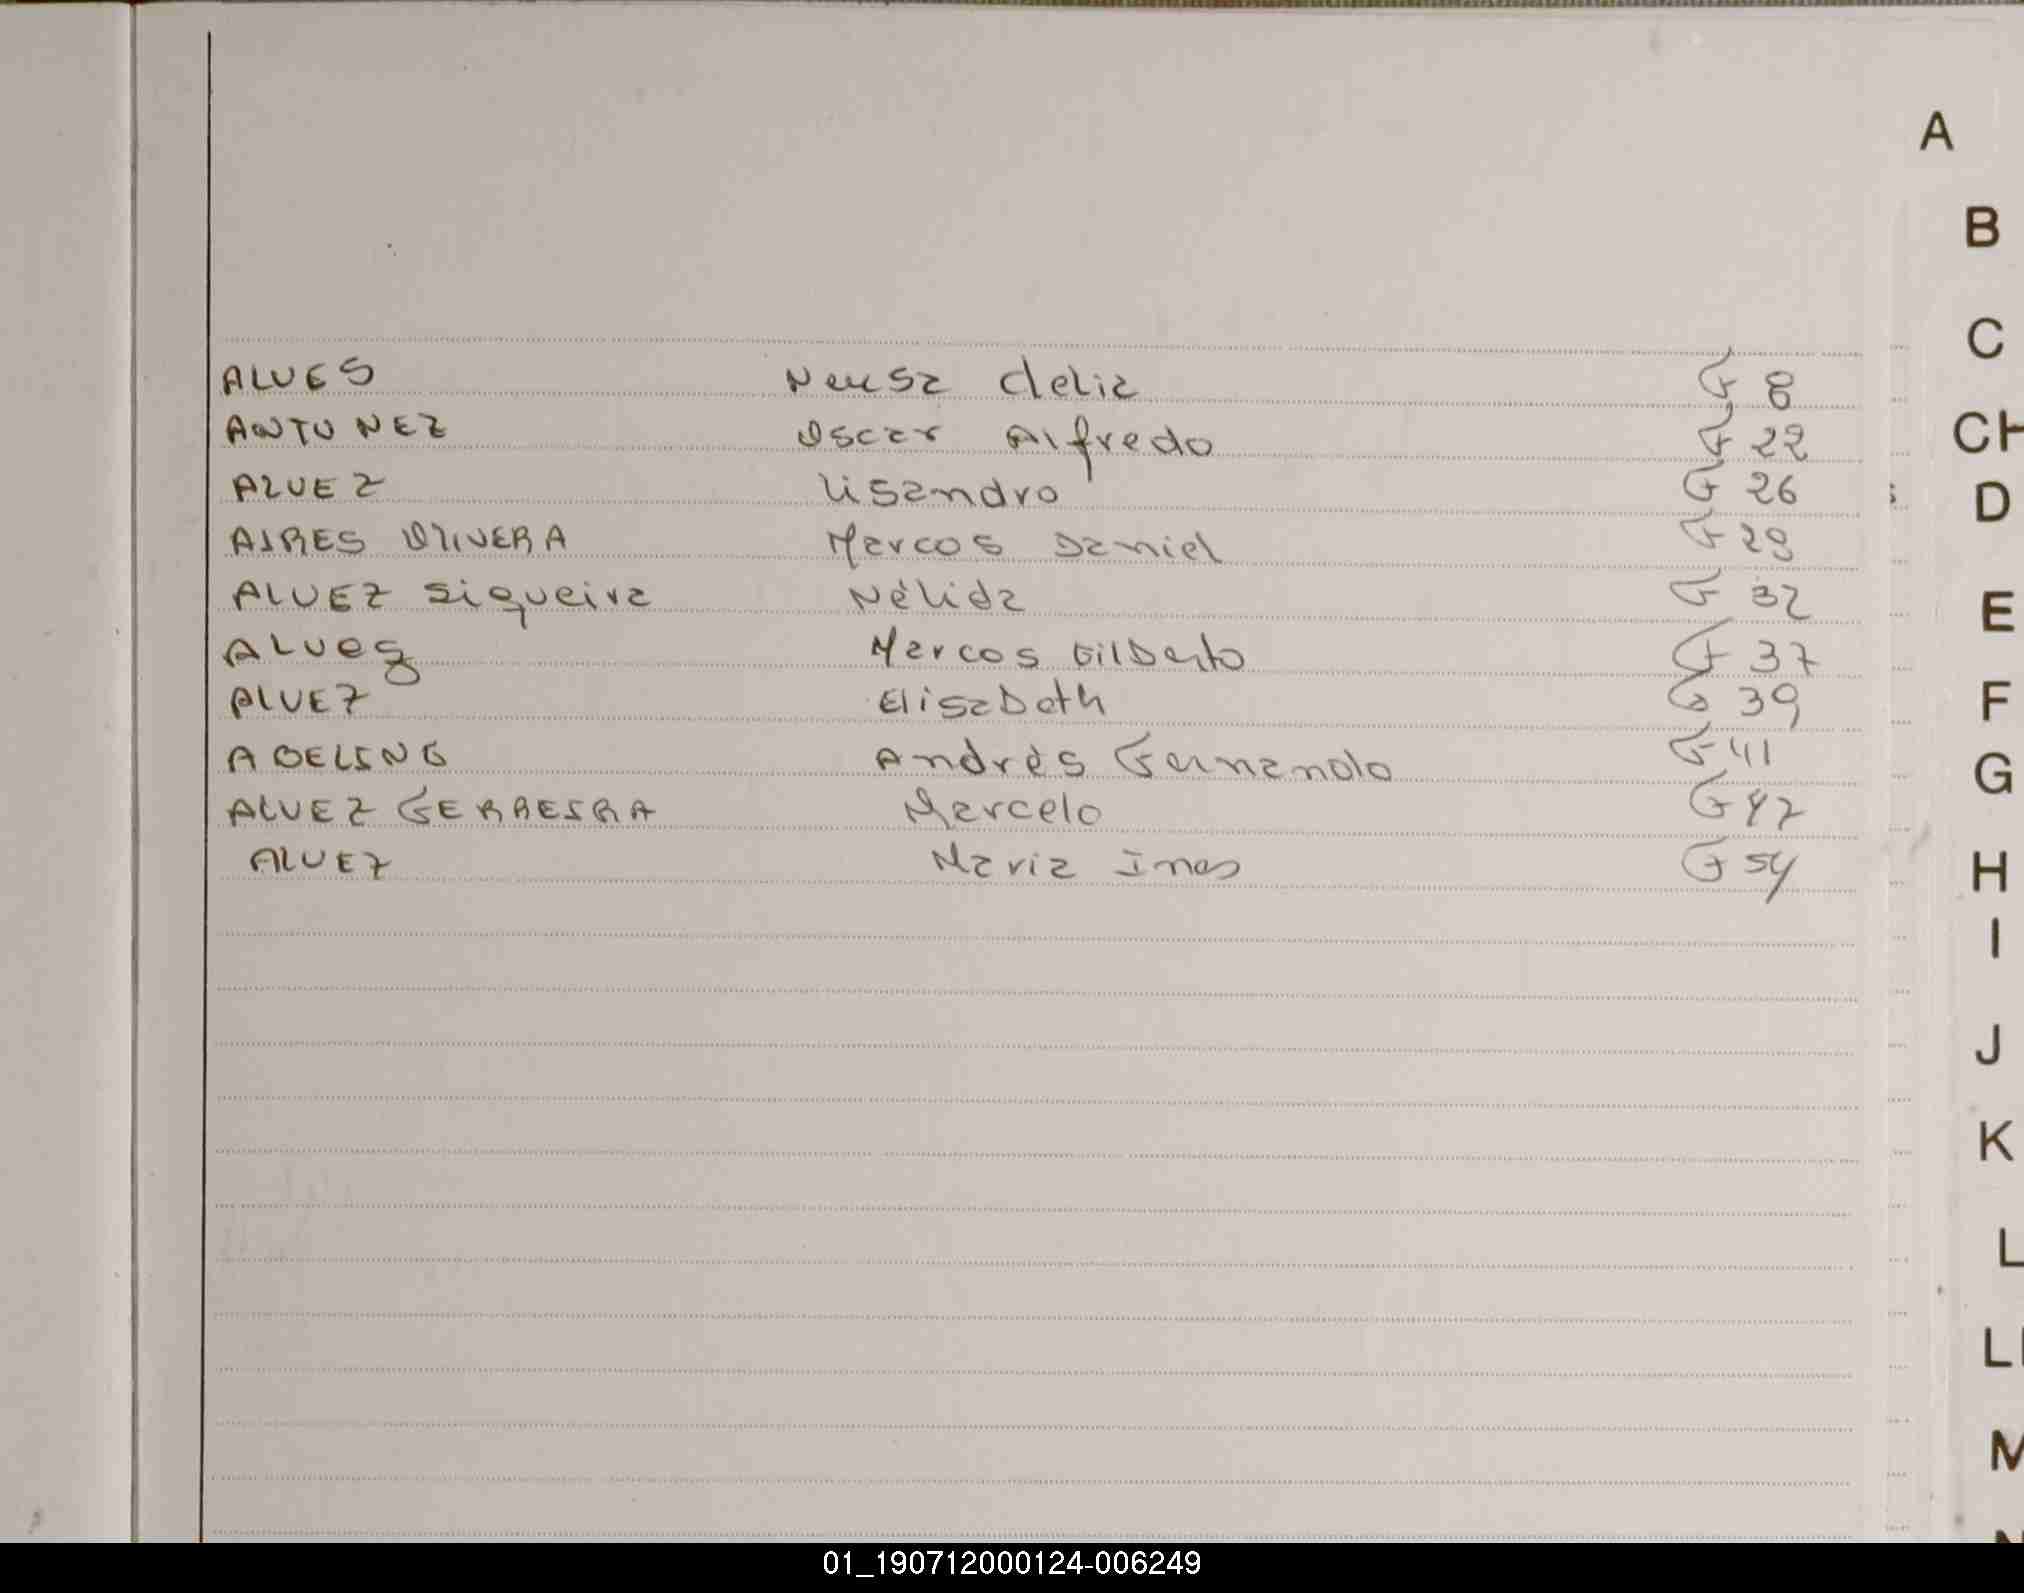 A
B
C
CH
D
E
F
G
H
I
J
K
L
M
ALVES Neusa Clelia F 8
ANTUNEZ Oscar Alfredo F 22
ALVEZ Lisandro F 26
AIRES OLIVERA Marcos Daniel F 29
ALVEZ Siqueira Nélida F 32
ALVES Marcos Gilberto F 37
ALVEZ Elisabeth F 39
ADELINO Andrés Fernando F 41
ALVEZ FERREIRA Marcelo F 47
ALVEZ Maria Ines F 54
01_190712000124-006249